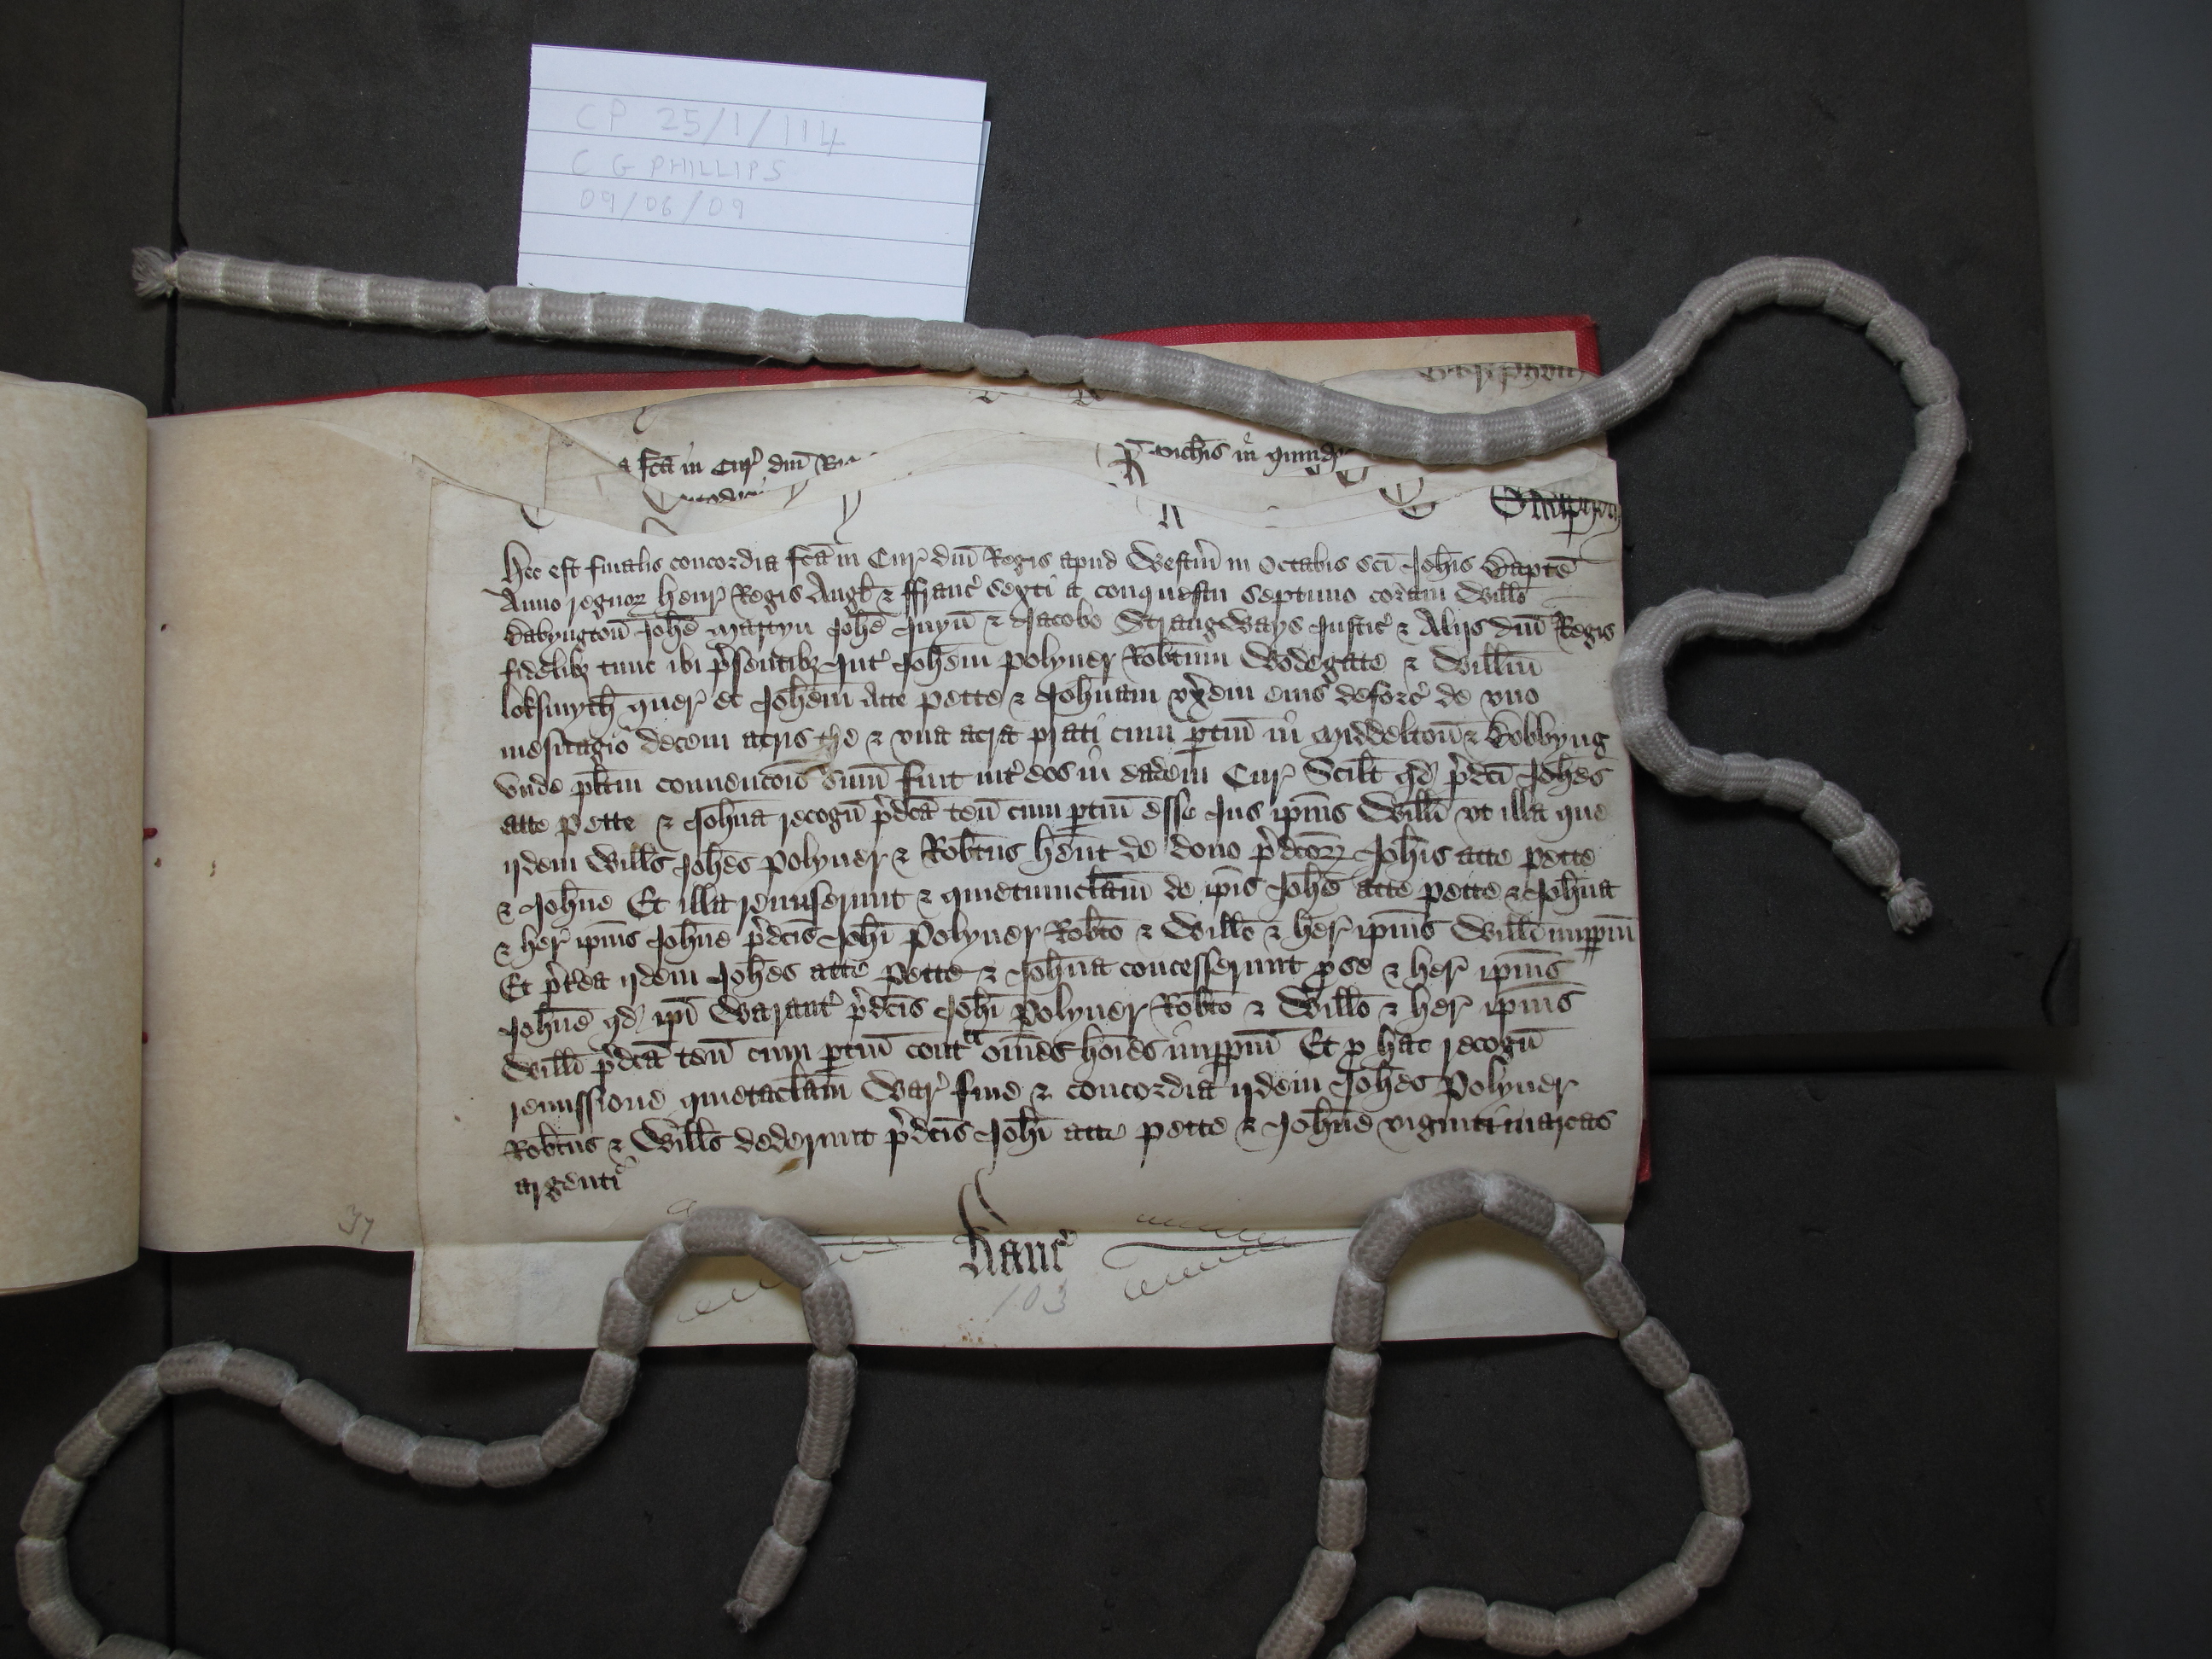 CP 25/1/114
C G PHILLIPS
09/06/09
a fcã in Cur̃ dñi
in quind
Hec est finalis concordia fcã in Cur̃ dñi Regis apud Westm̃ in Octabis sc̃i Joh̃is Bapt̃e
Anno regnoꝝ Henr̃ Regis Angł & ffranc̃ sexti a conquestu septimo coram Wiłło
Babyngtoñ Joh̃e Martyn Joh̃e Juyñ & Jacobo Strangways Justic̃ & Alijs dñi Regis
fidelibꝫ tunc ibi p̃sentibꝫ Int̃ Joh̃em Polyner Robt̃um Wodegate & Wiłłm̃
loksmyth quer̃ et Joh̃em Atte Pette & Joh̃nam vx̃em eius deforc̃ de vno
mesuagio decem acris t̃re & vna acra prati cum ptiñ in Middeltoñ & Bobbyng
vnde pl̃itm conuencõis sum̃ fuit int̃ eos in eadem Cur̃ Scił̃t qđ p̃dc̃i Joh̃es
atte Pette & Joh̃na recogñ p̃dc̃a teñ cum ptiñ esse Jus ip̃ius Wiłłi vt illa que
ijdem Wiłłs Joh̃es Polyner & Robt̃us hẽnt de dono p̃dc̃oꝝ Joh̃is atte Pette
& Joh̃ne Et illa remiserunt & quietumclam̃ de ip̃is Joh̃e atte Pette & Joh̃na
& her̃ ip̃ius Joh̃ne p̃dc̃is Joh̃i Polyner Robt̃o & Wiłło & her̃ ip̃ius Wiłłi imppm̃
Et p̃t̃ea ijdem Joh̃es atte Pette & Joh̃na concesserunt p se & her̃ ip̃ius
Joh̃ne qđ ip̃i Warant̃ p̃dc̃is Joh̃i Polyner Robt̃o & Wiłło & her̃ ip̃ius
Wiłłi p̃dc̃a teñ cum ptiñ contᵃ om̃es hoĩes imppm̃ Et p hac recogñ
remissione quietaclam̃ War̃ fine & concordia ijdem Joh̃es Polyner
Robt̃us & Wiłłs dederunt p̃dc̃is Joh̃i atte Pette & Joh̃ne viginti marcas
argenti
37
Kanc̃
103